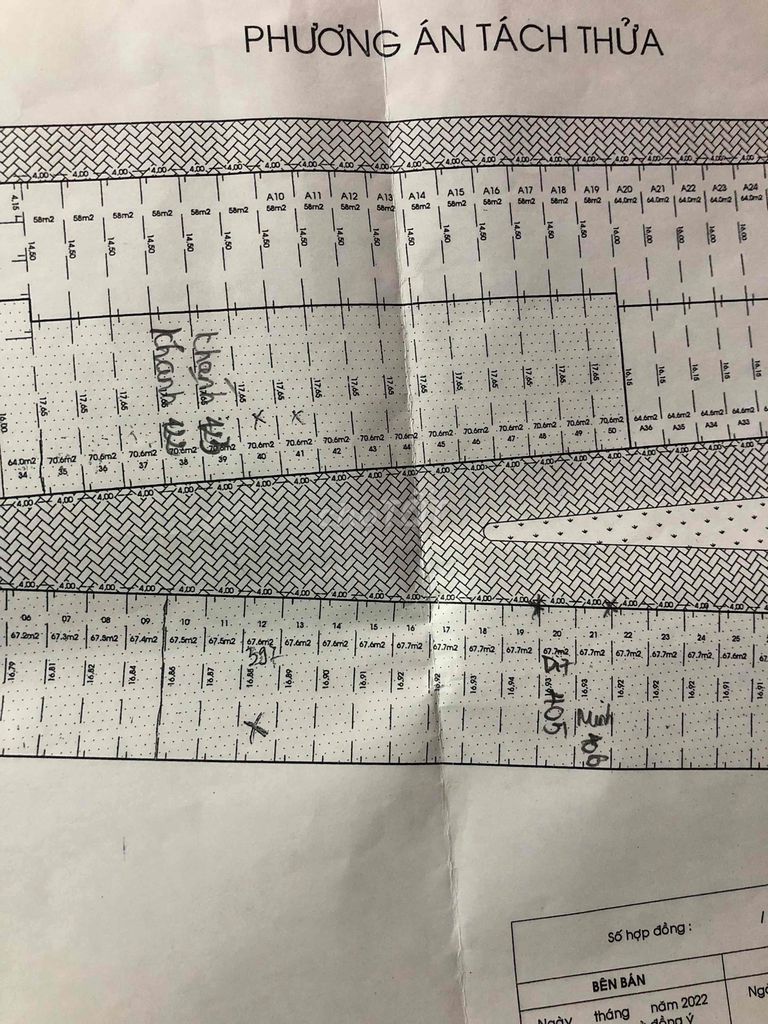 PHƯƠNG ÁN TÁCH THỬA
4.00 4.00 4.00 4.00 4.00 4.00 4.00 4.00 4.00 4.00 4.00 4.00 4.00 4.00 4.00 4.00 4.00 4.00 4.00
4.15
A10 A11 A12 A13 A14 A15 A16 A17 A18 A19 A20 A21 A22 A23 A24
58m2 58m2 58m2 58m2 58m2 58m2 58m2 58m2 58m2 58m2 58m2 58m2 58m2 58m2 58m2 58m2 64.0m2 64.0m2 64.0m2 64.0m2 64.0m2
14.50 14.50 14.50 14.50 14.50 14.50 14.50 14.50 14.50 14.50 14.50 14.50 14.50 14.50 14.50 16.00 16.00 16.00 16.00
khanh 422
thanh 423
16.00 17.65 17.65 17.65 17.65 17.65 17.65 17.65 17.65 17.65 17.65 17.65 17.65 17.65 17.65 17.65 16.15 16.15 16.15 16.15 16.15
64.0m2 70.6m2 70.6m2 70.6m2 70.6m2 70.6m2 70.6m2 70.6m2 70.6m2 70.6m2 70.6m2 70.6m2 70.6m2 70.6m2 70.6m2 70.6m2 70.6m2 64.6m2 64.6m2 64.6m2 64.6m2
34 35 36 37 38 39 40 41 42 43 44 45 46 47 48 49 50 A36 A35 A34 A33
06 07 08 09 10 11 12 13 14 15 16 17 18 19 20 21 22 23 24 25
67.2m2 67.3m2 67.3m2 67.4m2 67.5m2 67.5m2 67.6m2 67.6m2 67.6m2 67.6m2 67.7m2 67.7m2 67.7m2 67.7m2 67.7m2 67.7m2 67.7m2 67.7m2 67.7m2 67.6m2
397
16.79 16.81 16.82 16.84 16.86 16.87 16.88 16.89 16.90 16.91 16.92 16.92 16.93 16.94 16.93 16.93 16.92 16.92 16.92 16.91 16.91
405
406
Số hợp đồng : /
BÊN BÁN
Ngày tháng năm 2022
đồng ý